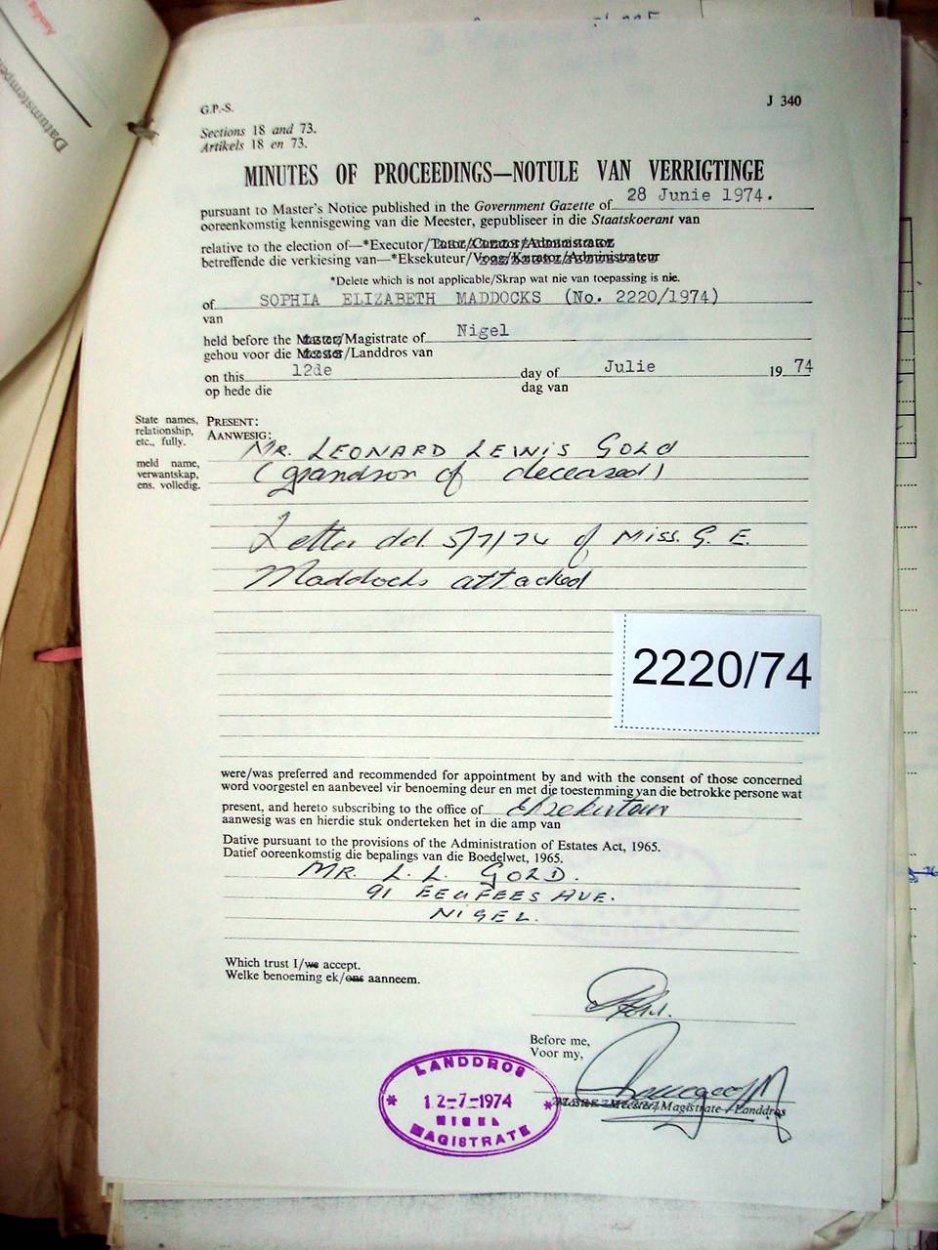 Datumstempel
G.P.-S.
J 340
Sections 18 and 73.
Artikels 18 en 73.
MINUTES OF PROCEEDINGS—NOTULE VAN VERRIGTINGE
pursuant to Master's Notice published in the Government Gazette of 28 Junie 1974.
ooreenkomstig kennisgewing van die Meester, gepubliseer in die Staatskoerant van
relative to the election of—*Executor/Tutor/Curator/Administrator
betreffende die verkiesing van—*Eksekuteur/Voog/Kurator/Administrateur
*Delete which is not applicable/Skrap wat nie van toepassing is nie.
of SOPHIA ELIZABETH MADDOCKS (No. 2220/1974)
van
held before the Master/Magistrate of Nigel
gehou voor die Meester/Landdros van
on this 12de day of Julie 19 74
op hede die dag van
State names, relationship, etc., fully.
PRESENT:
AANWESIG:
meld name, verwantskap, ens. volledig.
MR. LEONARD LEWIS GOLD
(grandson of deceased)
Letter dd. 5/7/74 of Miss. G. E.
Maddocks attached
2220/74
were/was preferred and recommended for appointment by and with the consent of those concerned
word voorgestel en aanbeveel vir benoeming deur en met die toestemming van die betrokke persone wat
present, and hereto subscribing to the office of Eksekuteur
aanwesig was en hierdie stuk onderteken het in die amp van
Dative pursuant to the provisions of the Administration of Estates Act, 1965.
Datief ooreenkomstig die bepalings van die Boedelwet, 1965.
MR. L. L. GOLD.
91 EEUFEES AVE.
NIGEL.
Which trust I/we accept.
Welke benoeming ek/ons aanneem.
Before me,
Voor my,
Meester/Magistrate - Landdros
LANDDROS
12-7-1974
NIGEL
MAGISTRATE